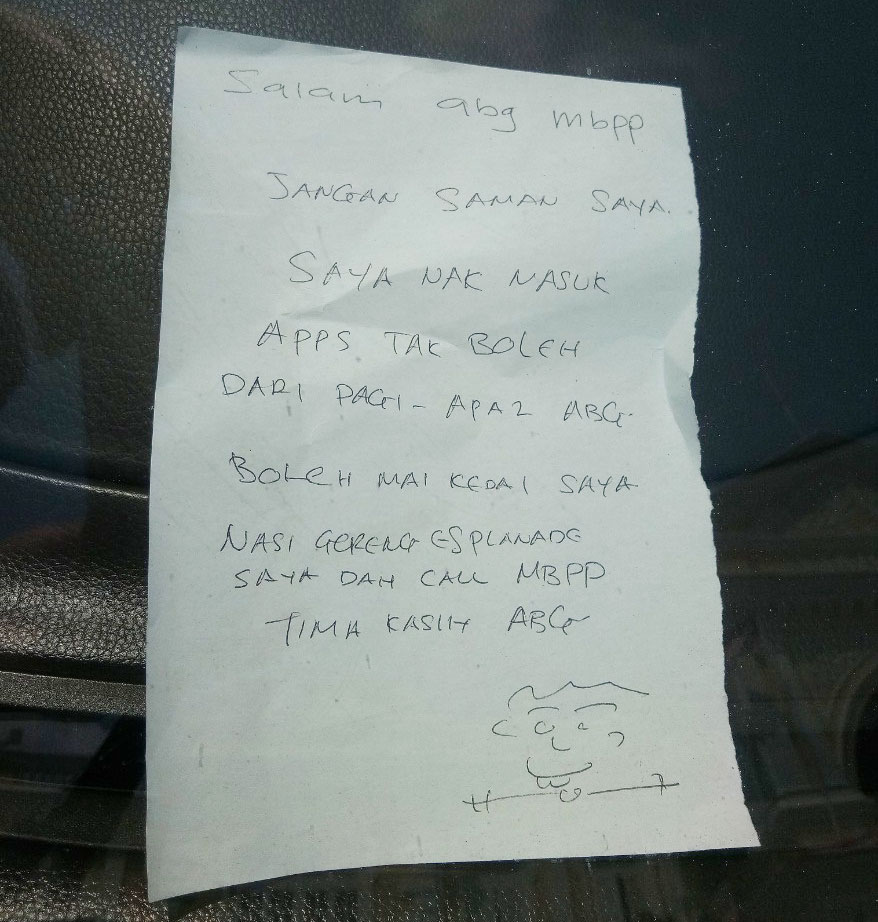 Salam abg mbpp
JANGAN SAMAN SAYA.
SAYA NAK NASUK
APPS TAK BOLEH
DARI PAGI - APA2 ABG.
BOLEH MAI KEDAI SAYA
NASI GERENG ESPLANADE
SAYA DAH CALL MBPP
TIMA KASIH ABG